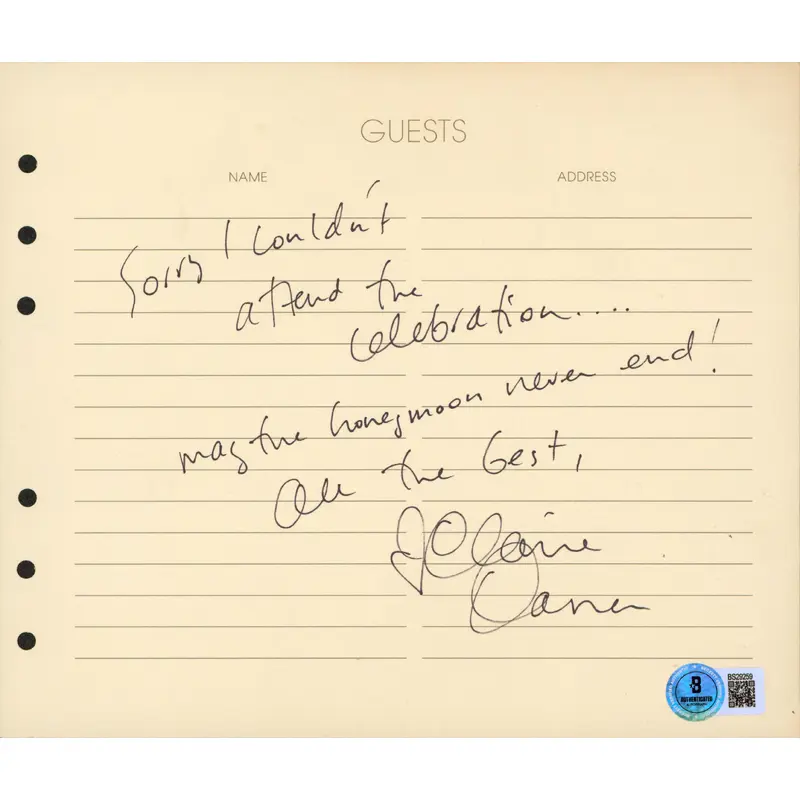 GUESTS
NAME
ADDRESS
Sorry I couldn't
attend the
celebration....
may the honeymoon never end!
All the best,
Elaine
BS29259
B
AUTHENTICATED